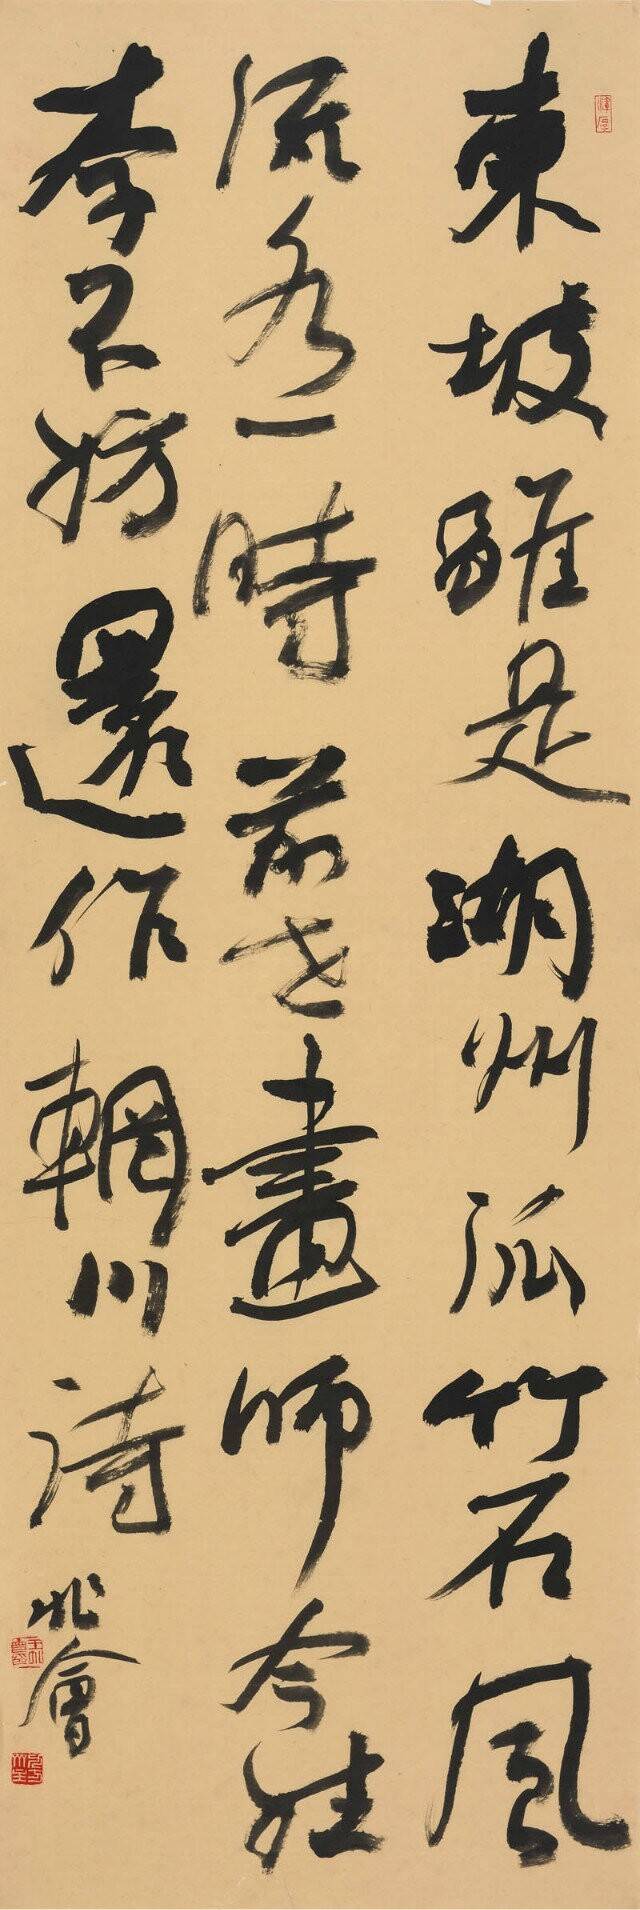 東坡雖是湖州派竹石風
流各一時前世畫師今姓
李不妨還作輞川詩
兆會